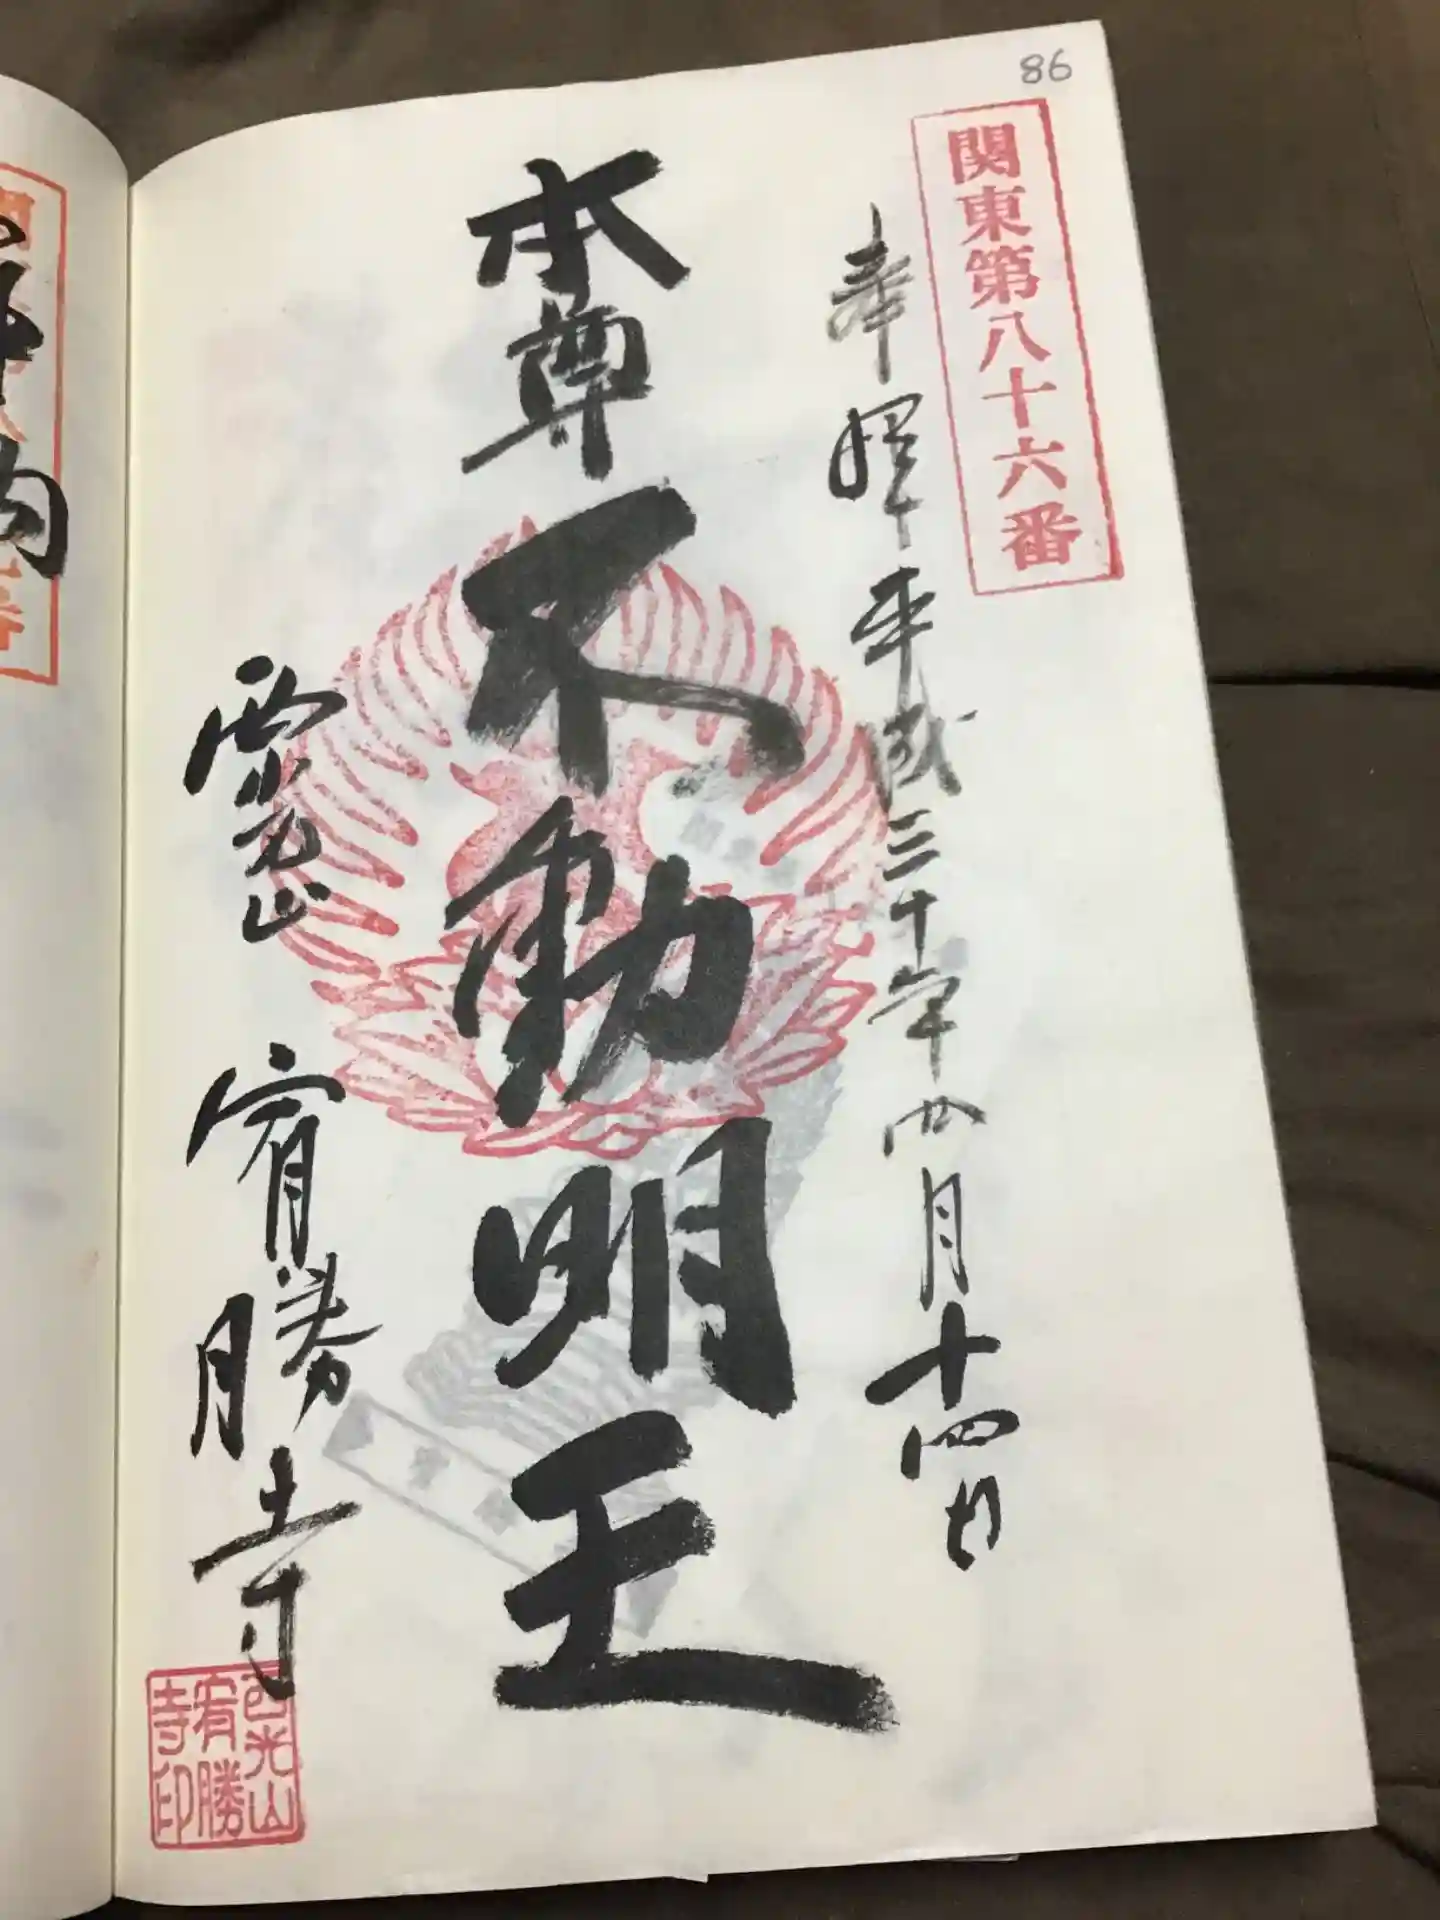 86
関東第八十六番
奉拝 平成三十年四月十四日
本尊 不動明王
西光山 宥勝寺
西光山
宥勝
寺印